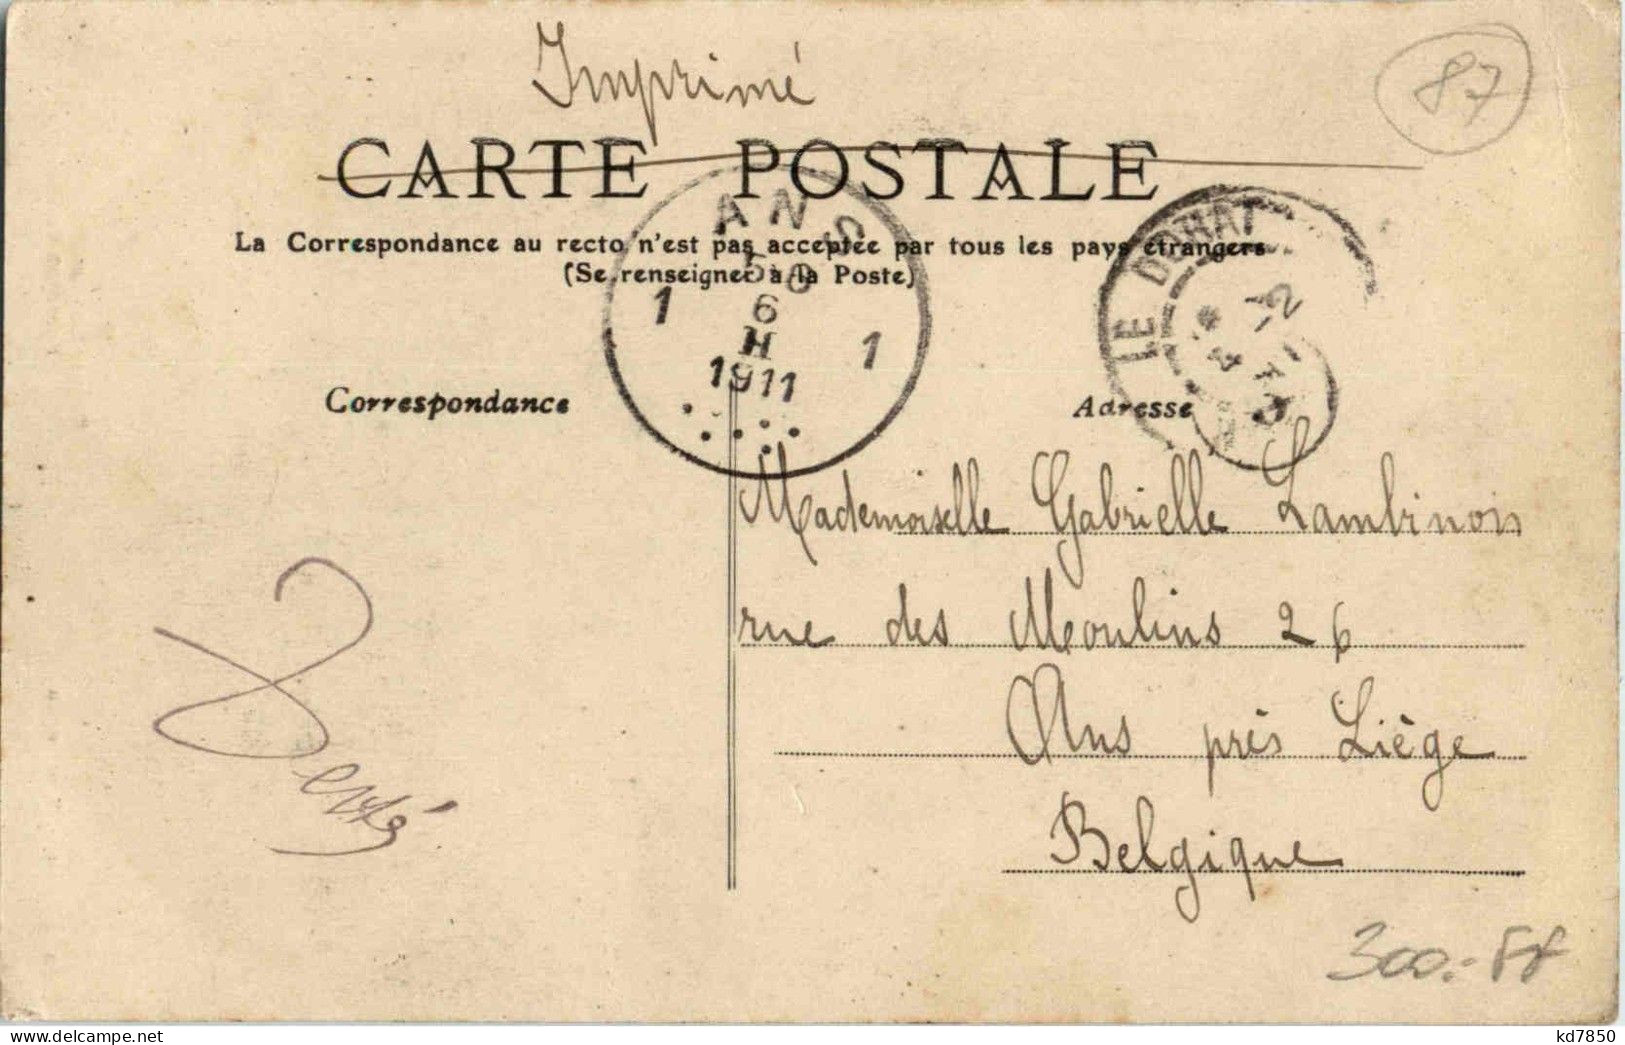 Imprimé
87
CARTE POSTALE
La Correspondance au recto n'est pas acceptée par tous les pays étrangers
(Se renseigner à la Poste)
ANS
1 6 1
H
1911
LE DORAT
Correspondance
Adresse
Mademoiselle Gabrielle Lambinon
rue des Moulins 26
Ans près Liège
Belgique
300.- FF
kd7850